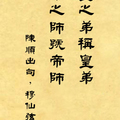 之弟稱皇弟
之師號帝師
陳順出句，穆仙落